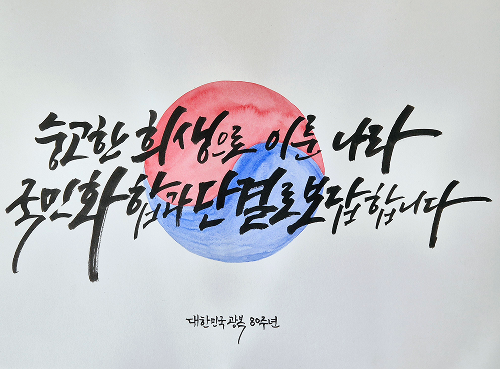 숭고한 희생으로 이룬 나라
국민화합과 단결로 보답합니다
대한민국 광복 80주년